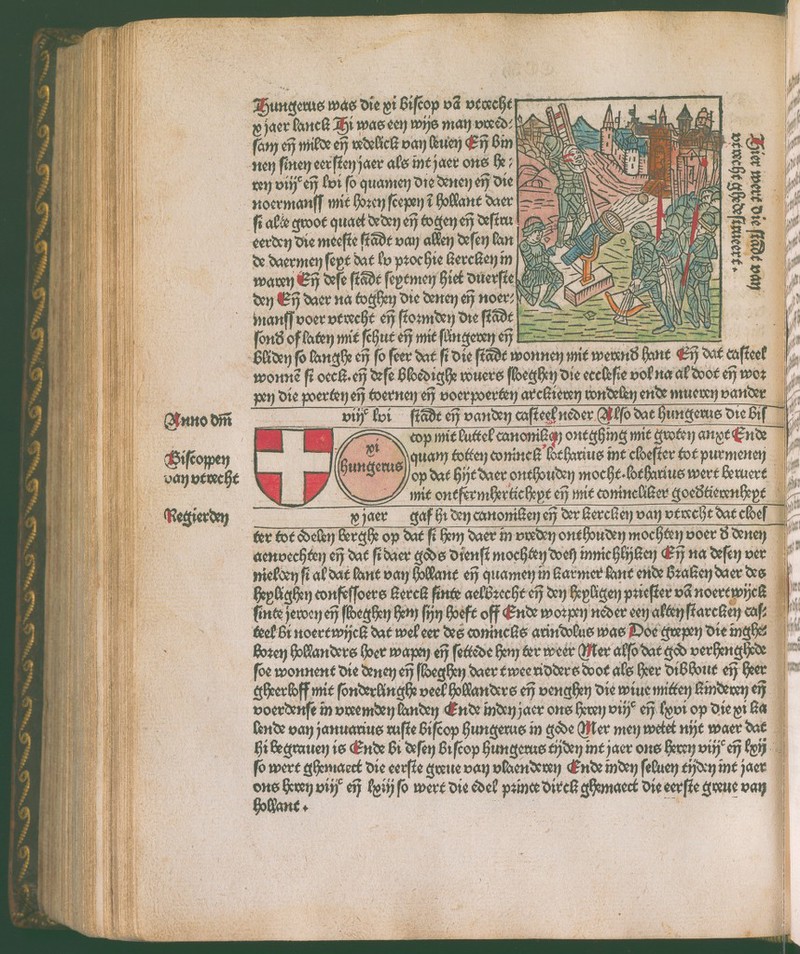 Hungerus was die xi biscop vā vtrecht
x jaer lanck Hi was een wijs man vreed⸗
sam eñ milde eñ redelick van leuen Eñ bin
nen sinen eersten jaer als int jaer ons he⸗
ren viijᶜ eñ lvi so quamen die denen eñ die
noermans mit horen scepen ī hollant daer
si alte groot quaet deden eñ togen eñ destru
eerden die meeste stāde van allen desen lan
de daermen seyt dat lv prochie kercken in
waren Eñ dese stāde seytmen hiet duerste
den Eñ daer na toghen die denen eñ noer⸗
mans voer vtrecht eñ stormden die stāde
sond of laten mit schut eñ mit slingeren eñ
bliden so langhe eñ so seer dat si die stāde wonnen mit werend hant Eñ dat casteel
wonnē si oeck. eñ dese bloedighe rouers sloeghen die ecclesie vol na al doot eñ wor
pen die poerten eñ toernen eñ voerpoerten arckieren rondelen ende mueren vander
Hier wert die stāde van
vtrecht ghedestrueert.
Anno dm̄
viijᶜ lvi
stāde eñ vanden casteel neder Also dat hungerus die bis
cop mit luttel canoniken ontghing mit groten anxt Ende
quam totten coninck lotharius int cloester tot purmenen
op dat hijt daer onthouden mocht. lotharius wert beruert
mit ontfermherticheyt eñ mit conincliker goedtierenheyt
Biscoppen
van vtrecht
xi
hungerus
Regierden
x jaer
gaf hi den canoniken eñ der kercken van vtrecht dat cloes
ter tot odelen berghe op dat si hem daer in vreden onthouden mochten voer d denen
aenvechten eñ dat si daer gods dienst mochten doen innichlijken Eñ na desen ver
nielden si al dat lant van hollant eñ quamen in karmer lant ende braken daer des
heylighen confessoers kerck sinte aelbrecht eñ den heyligen priester vā noertwijck
sinte jeroen eñ sloeghen hem sijn hoeft off Ende worpen neder een alten starcken cas⸗
teel bi noertwijck dat wel eer des conincks arindolus was Doe grepen die inghe
boren hollanders hoer wapen eñ settēde hem ter weer Mer also dat god verhenghede
soe wonnent die denen eñ sloeghen daer twee ridders doot als heer dibbout eñ heer
gheerloff mit sonderlinghe veel hollanders eñ venghen die wiue mitten kinderen eñ
voerdense in vreemden landen Ende inden jaer ons heren viijᶜ eñ lxvi op die xi ka
lende van januarius ruste biscop hungerus in gode Mer men wetet nijt waer dat
hi begrauen is Ende bi desen biscop hungerus tijden int jaer ons heren viijᶜ eñ lxij
so wert ghemaect die eerste greue van vlaenderen Ende inden seluen tijden int jaer
ons heren viijᶜ eñ lxiij so wert die edel prince dirck ghemaect die eerste greue van
hollant.